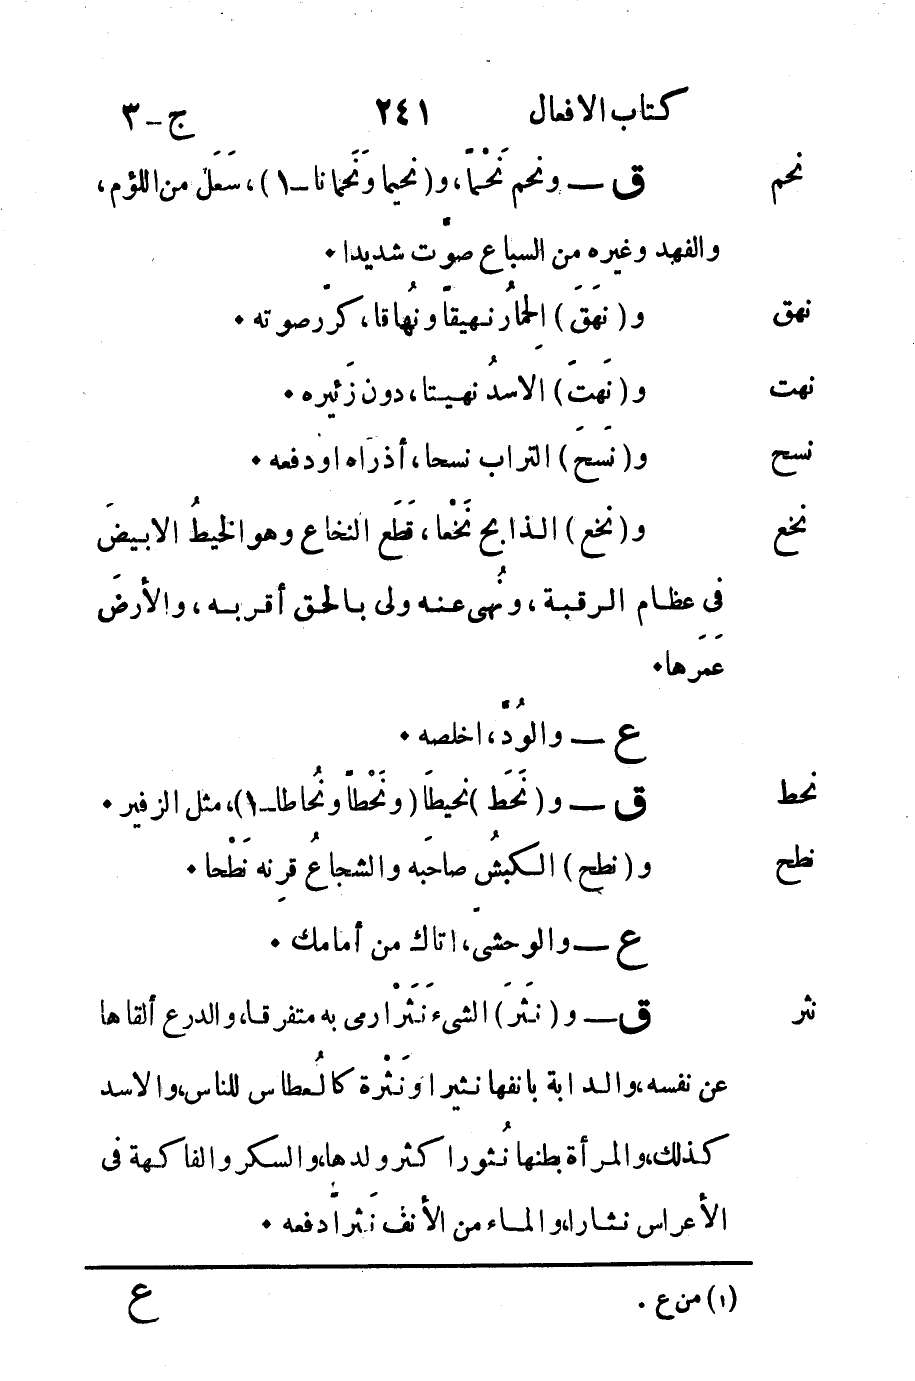 كتاب الافعال ٢٤١ ج-٣
نحم ق — ونحم نَحْمًا، و(نحيما ونَحَمانا-١)، سَعَلَ من اللؤم،
والفهد وغيره من السباع صوّت شديدا •
نهق و(نَهَقَ) الحمارُ نهيقاً ونُهاقا، كرّر صوته •
نهت و(نَهَتَ) الاسدُ نهيتا، دون زَئيرِه •
نسح و(نَسَحَ) التراب نسحا، أذراه اودفعه •
نخع و(نخع) الذابح نَخْعا، قَطَع النخاع وهو الخيطُ الابيضَ
فى عظام الرقبة، ونُهى عنه ولى بالحق أقربه، والأرضَ
عَمَرها•
ع — والوُدّ، اخلصه •
نحط ق — و(نَحَط) نحيطًا (ونَحْطاً ونُحاطا-١)، مثل الزفير •
نطح و(نطح) الكبشُ صاحَبه والشجاعُ قرِنه نَطْحا •
ع — والوحشىّ، اتاك من أمامك •
نثر ق — و(نَثَرَ) الشىء نَثَرْا رمى به متفرقا، والدرع ألقاها
عن نفسه، والدابة بانفها نثيرا ونَثْرة كالُعطاس للناس، والاسد
كذلك، والمرأة بطنها نُثورا كثر ولدها، والسكر والفاكهة فى
الأعراس نثارا، والماء من الأنف نَثراً دفعه •
(١) من ع .
ع